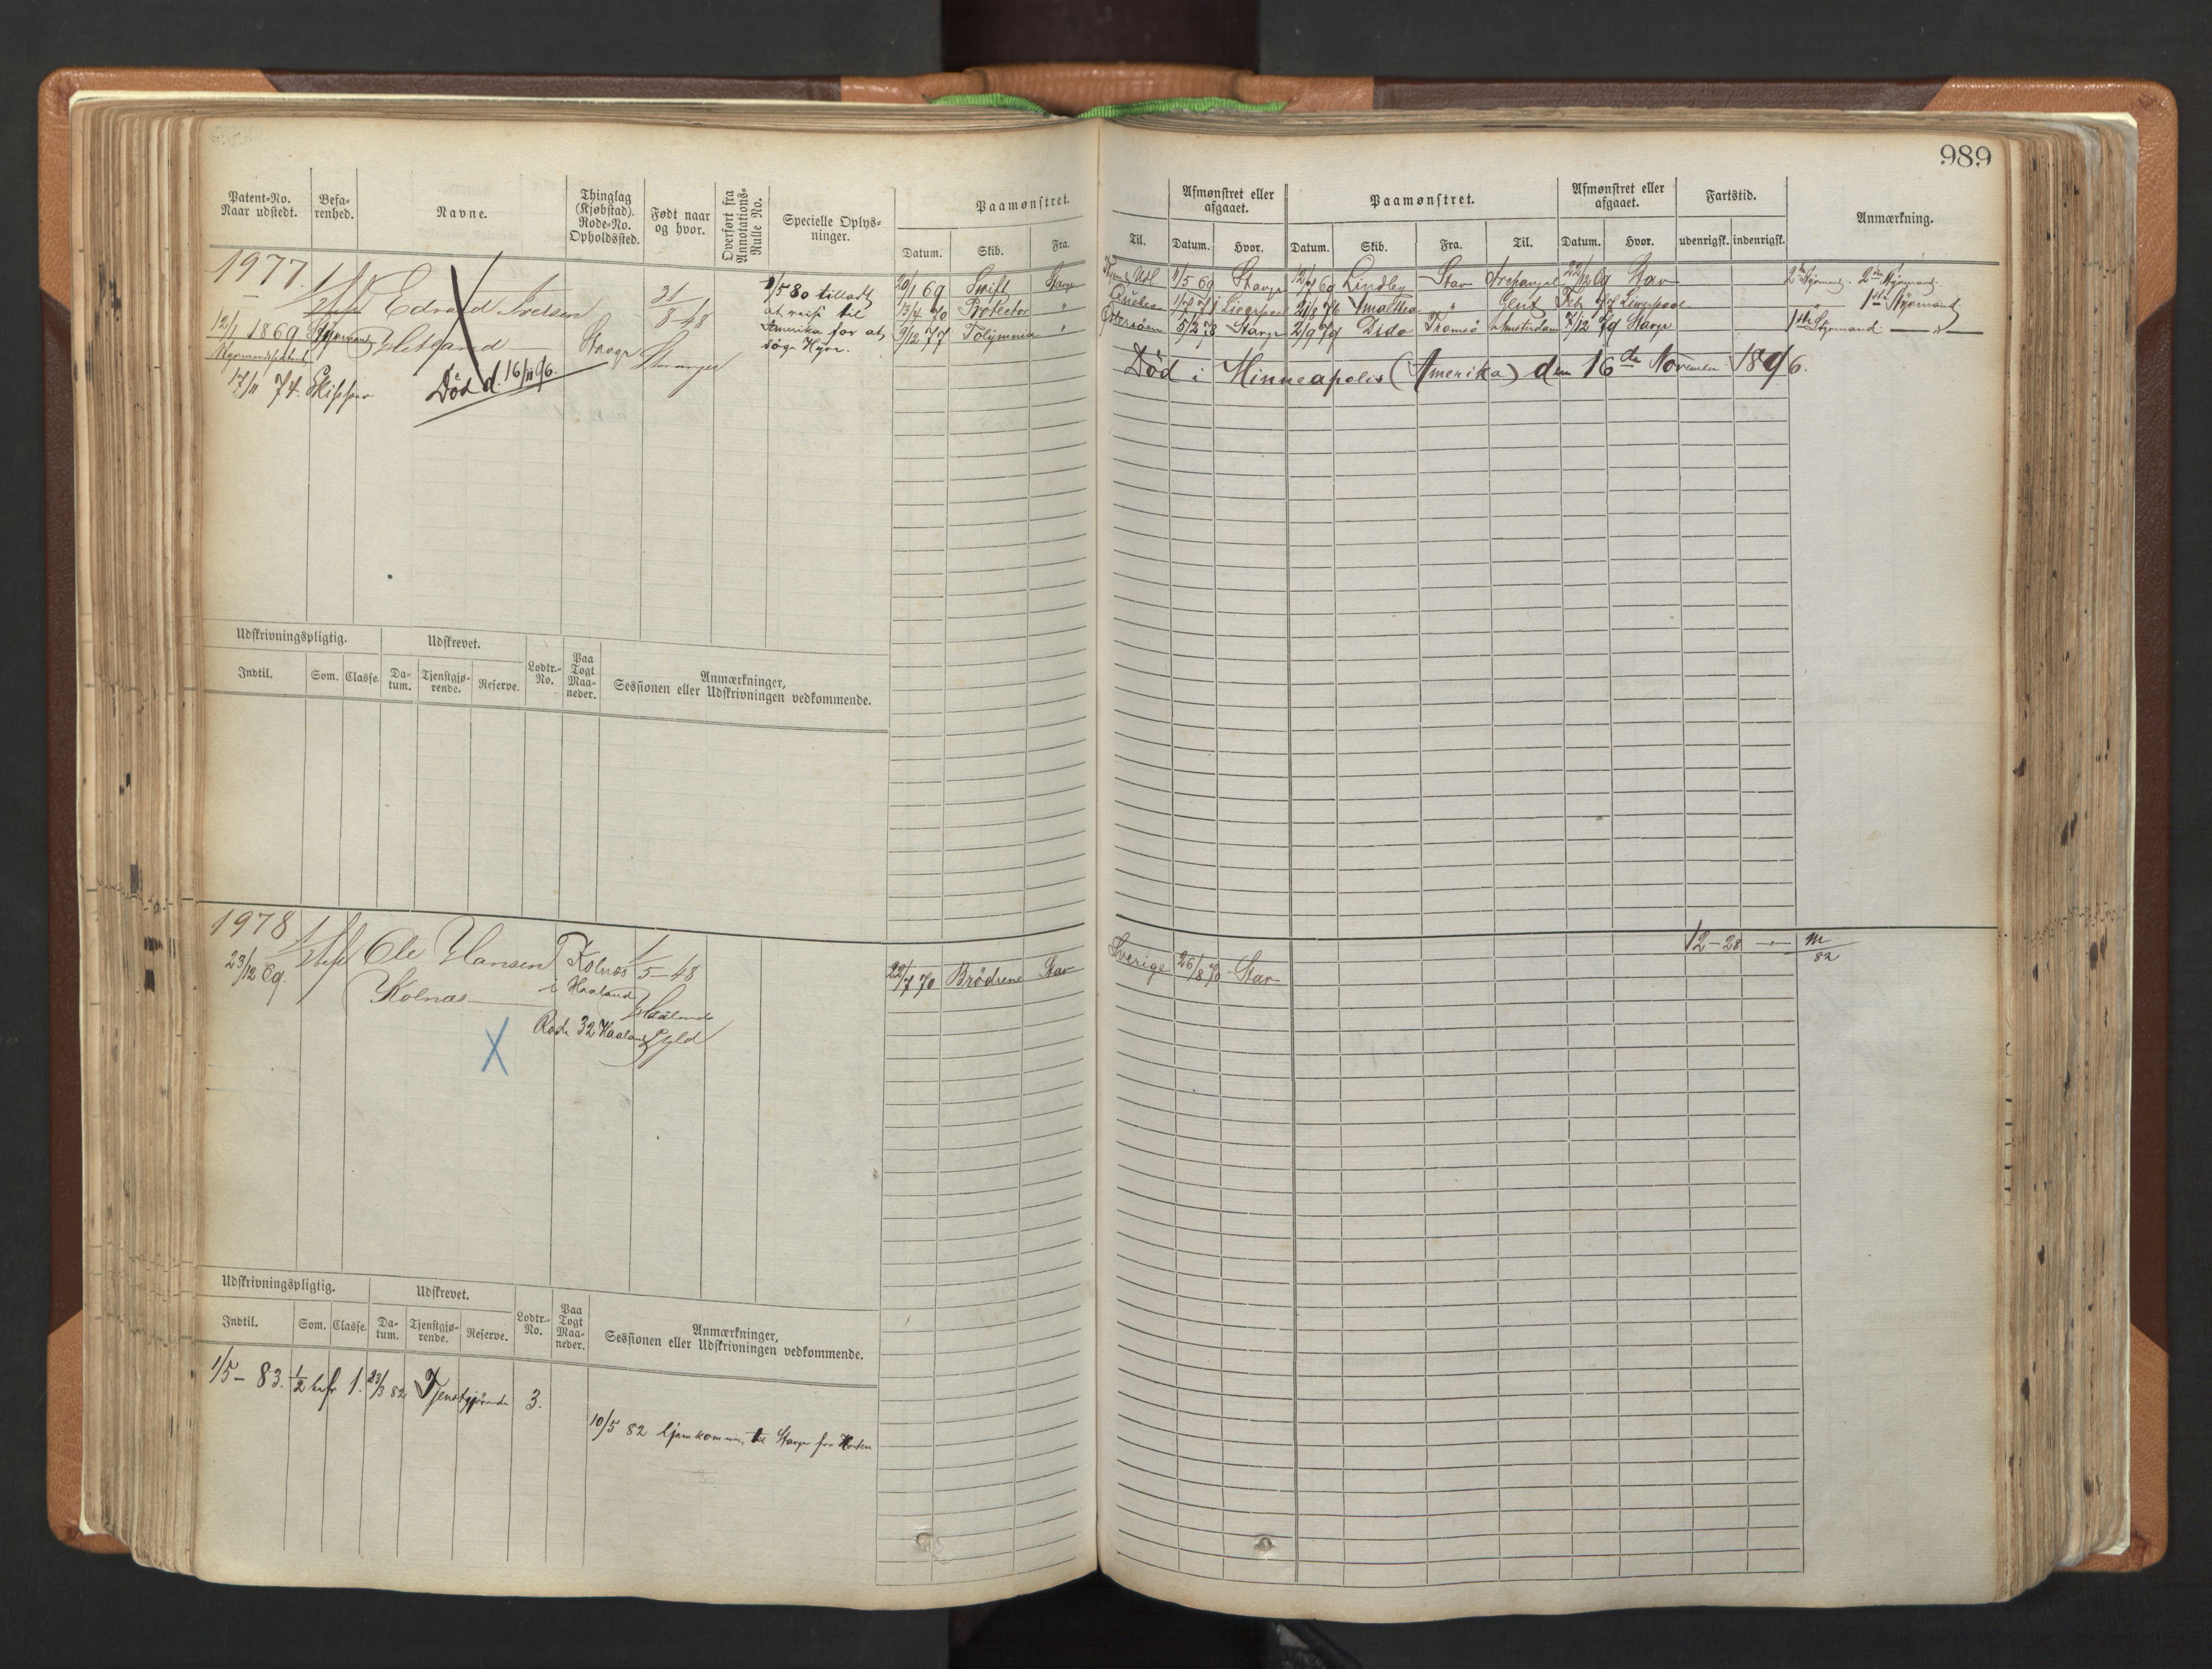 989
Patent-No. Naar udstedt.
Befa-renhed.
Navne.
Thinglag (Kjøbstad). Rode-No. Opholdssted.
Født naar og hvor.
Overført fra Annotations-Rulle No.
Specielle Oplys-ninger.
Paamønstret.
Datum. Skib. Fra. Til.
Afmønstret eller afgaaet.
Datum. Hvor.
Paamønstret.
Datum. Skib. Fra. Til.
Afmønstret eller afgaaet.
Datum. Hvor.
Fartstid.
udenrigsk. indenrigsk.
Anmærkning.
1977.
12/1 1869
Styrmandspatent
17/11 74. Skipper
Styrmand
Edvard Iversen
Død d. 16/11 96.
Stavgr
31/8 48
Stavanger
1/5 80 tilladt
at reise til
Amerika for at
søge Hyre.
20/1 69 Swift Stavgr
13/4 70 Protector "
9/12 77 Polymnia "
1/5 69 Stavgr 12/7 69 Lindby Stav Archangel 22/12 69 Stav 2den Styrmand. 2den Styrmand.
Quebec 21/8 76 Amalthea " Gent Feb 77 Liverpool 1ste Styrmand
Stavgr 2/9 79 Dido Tromsö Amsterdam 7/12 79 Stavgr 1ste Styrmand
Død i Minneapolis (Amerika) den 16de November 1896.
Udskrivningspligtig.
Udskrevet.
Indtil. Som. Classe. Da-tum. Tjenstgjø-rende. Reserve. Lodtr.-No. Paa Togt Maa-neder.
Anmærkninger,
Sessionen eller Udskrivningen vedkommende.
1978
23/12 69.
1/2 bef
Ole Hansen
Kolnæs
Kolnæs
i Haaland
Rode 32 Haaland
1/5-48
Haalands
Gjeld
X
22/7 70 Brödrene Stav
Sverige 26/8 70 Stav
12-28 m/82
Udskrivningspligtig.
Udskrevet.
Indtil. Som. Classe. Da-tum. Tjenstgjø-rende. Reserve. Lodtr.-No. Paa Togt Maa-neder.
Anmærkninger,
Sessionen eller Udskrivningen vedkommende.
1/5-83. 1/2 bef 1. 23/3 82 Tjenstgjörende 3.
10/5 82 hjemkommen til Stavgr fra Horten